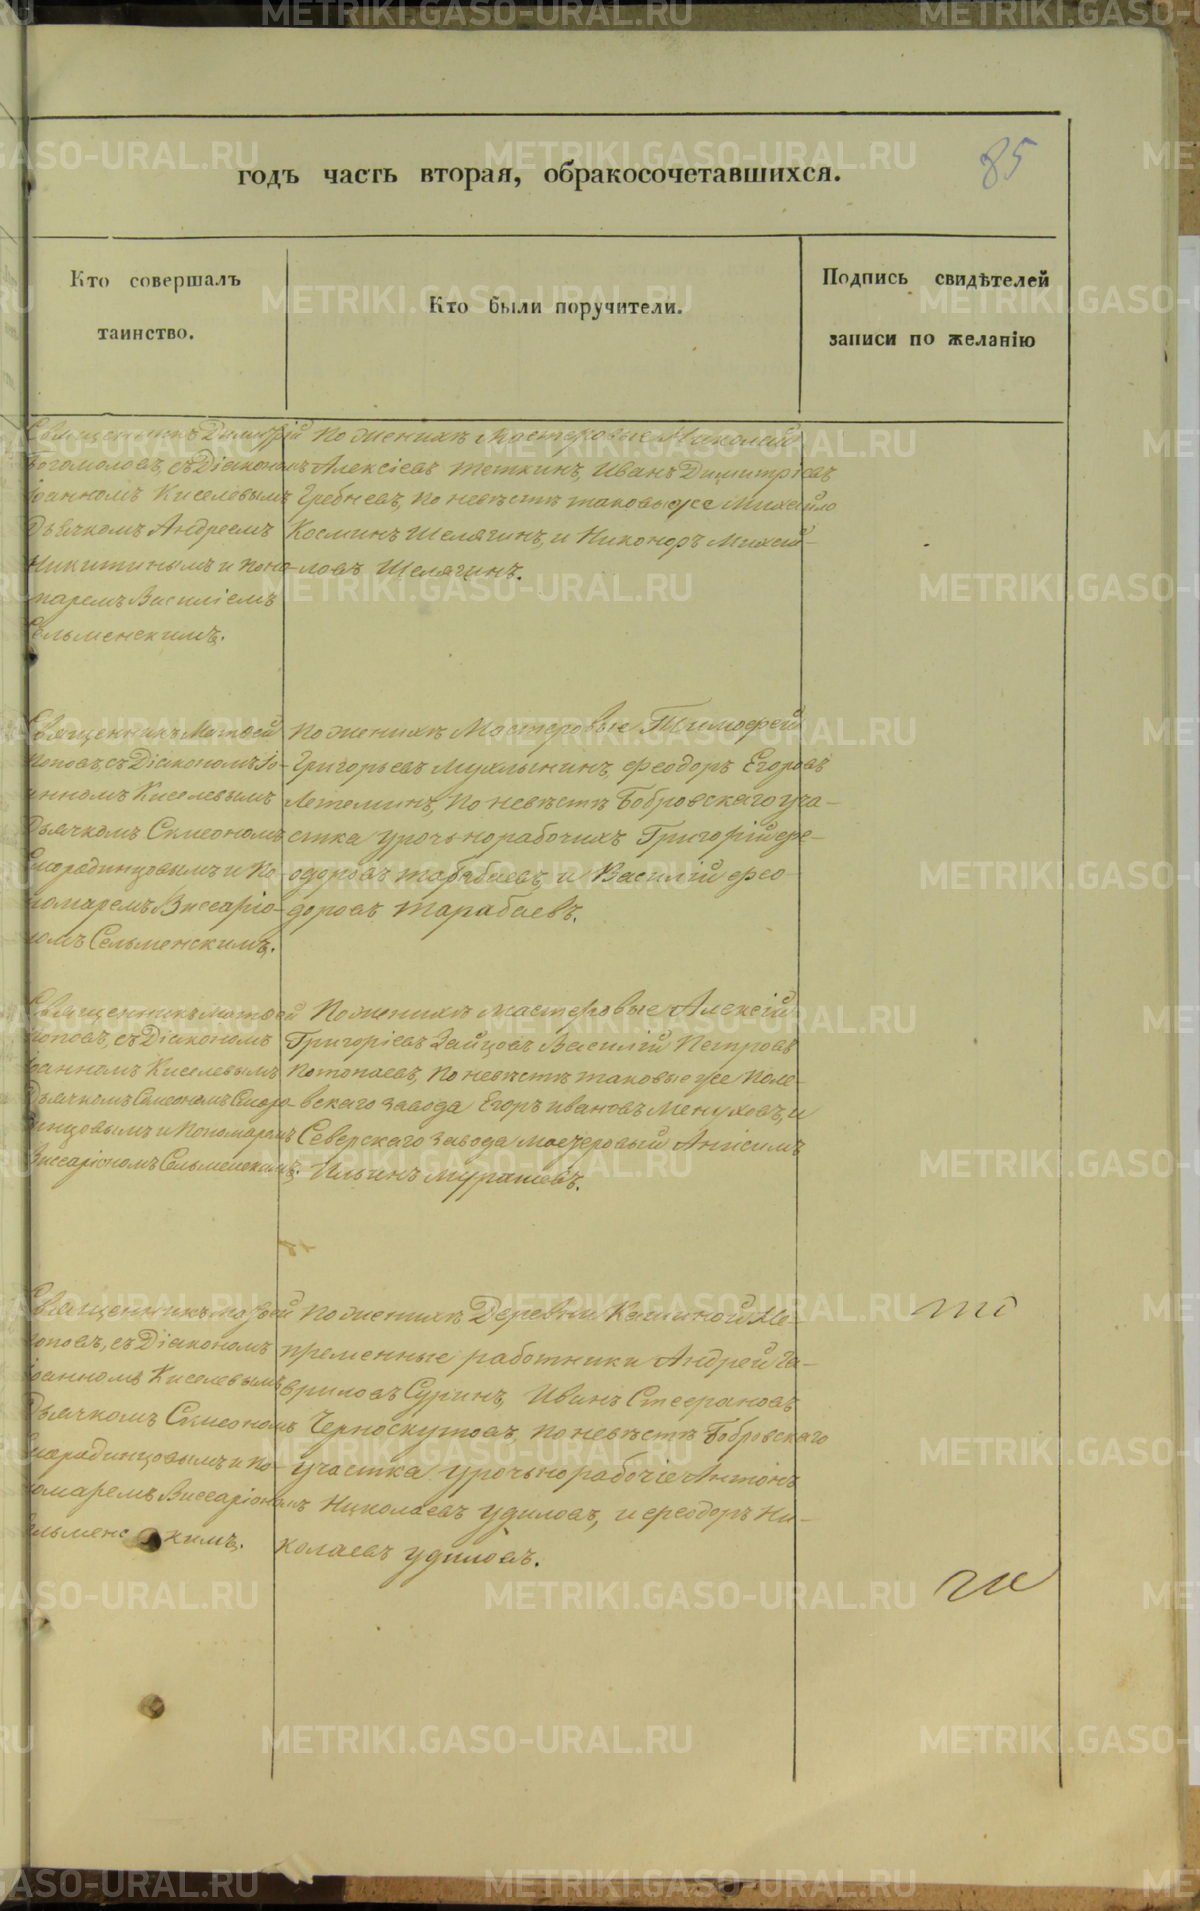 85
годъ часть вторая, обракосочетавшихся.
Кто совершалъ
таинство.
Кто были поручители.
Подпись свидѣтелей
записи по желанію
Священникъ Димитрій
Богомоловъ, съ Діакономъ
Іоанномъ Киселевымъ
Дьячкомъ Андреемъ
Никитинымъ и поно-
маремъ Василіемъ
Сельменскимъ.
По женихѣ Мастеровые Николай
Алексѣевъ Теткинъ, Иванъ Димитріевъ
Гребневъ, по невѣстѣ таковыеже Михайло
Косминъ Шелягинъ, и Никоноръ Михай-
ловъ Шелягинъ.
Священникъ Матѳей
Поповъ, съ Діакономъ Іо-
анномъ Киселевымъ
Дьячкомъ Симеономъ
и по-
номаремъ Виссаріо-
номъ Сельменскимъ.
По женихѣ Мастеровые Тимофей
Григорьевъ Мухлынинъ, Феодоръ Егоровъ
Летеминъ, по невѣстѣ Бобровскаго уча-
стка урочьнорабочихъ Григорій Фе-
одоровъ Тарабаевъ и Василій Фео-
доровъ Тарабаевъ.
Священникъ Матѳей
Поповъ, съ Діакономъ
Іоанномъ Киселевымъ
Дьячкомъ Симеономъ
и Пономаремъ
Виссаріономъ Сельменскимъ.
По женихѣ мастеровые Алексій
Григоріевъ Зайцовъ Василій Петровъ
Потопаевъ, по невѣстѣ таковые же Поле-
вскаго завода Егоръ Ивановъ Менуховъ, и
Северскаго завода мастеровый Анисимъ
Ильинъ Мурашевъ.
Священникъ Матѳей
Поповъ, съ Діакономъ
Іоанномъ Киселевымъ
Дьячкомъ Симеономъ
и по-
номаремъ Виссаріономъ
Сельменскимъ.
По женихѣ Деревни Кашиной Не-
пременные работники Андрей Га-
вриловъ Суринъ, Иванъ Стефановъ
Черноскутовъ, по невѣстѣ Бобровскаго
участка урочьнорабочіе Антонъ
Николаевъ Удиловъ, и Феодоръ Ни-
колаевъ Удиловъ.
METRIKI.GASO-URAL.RU